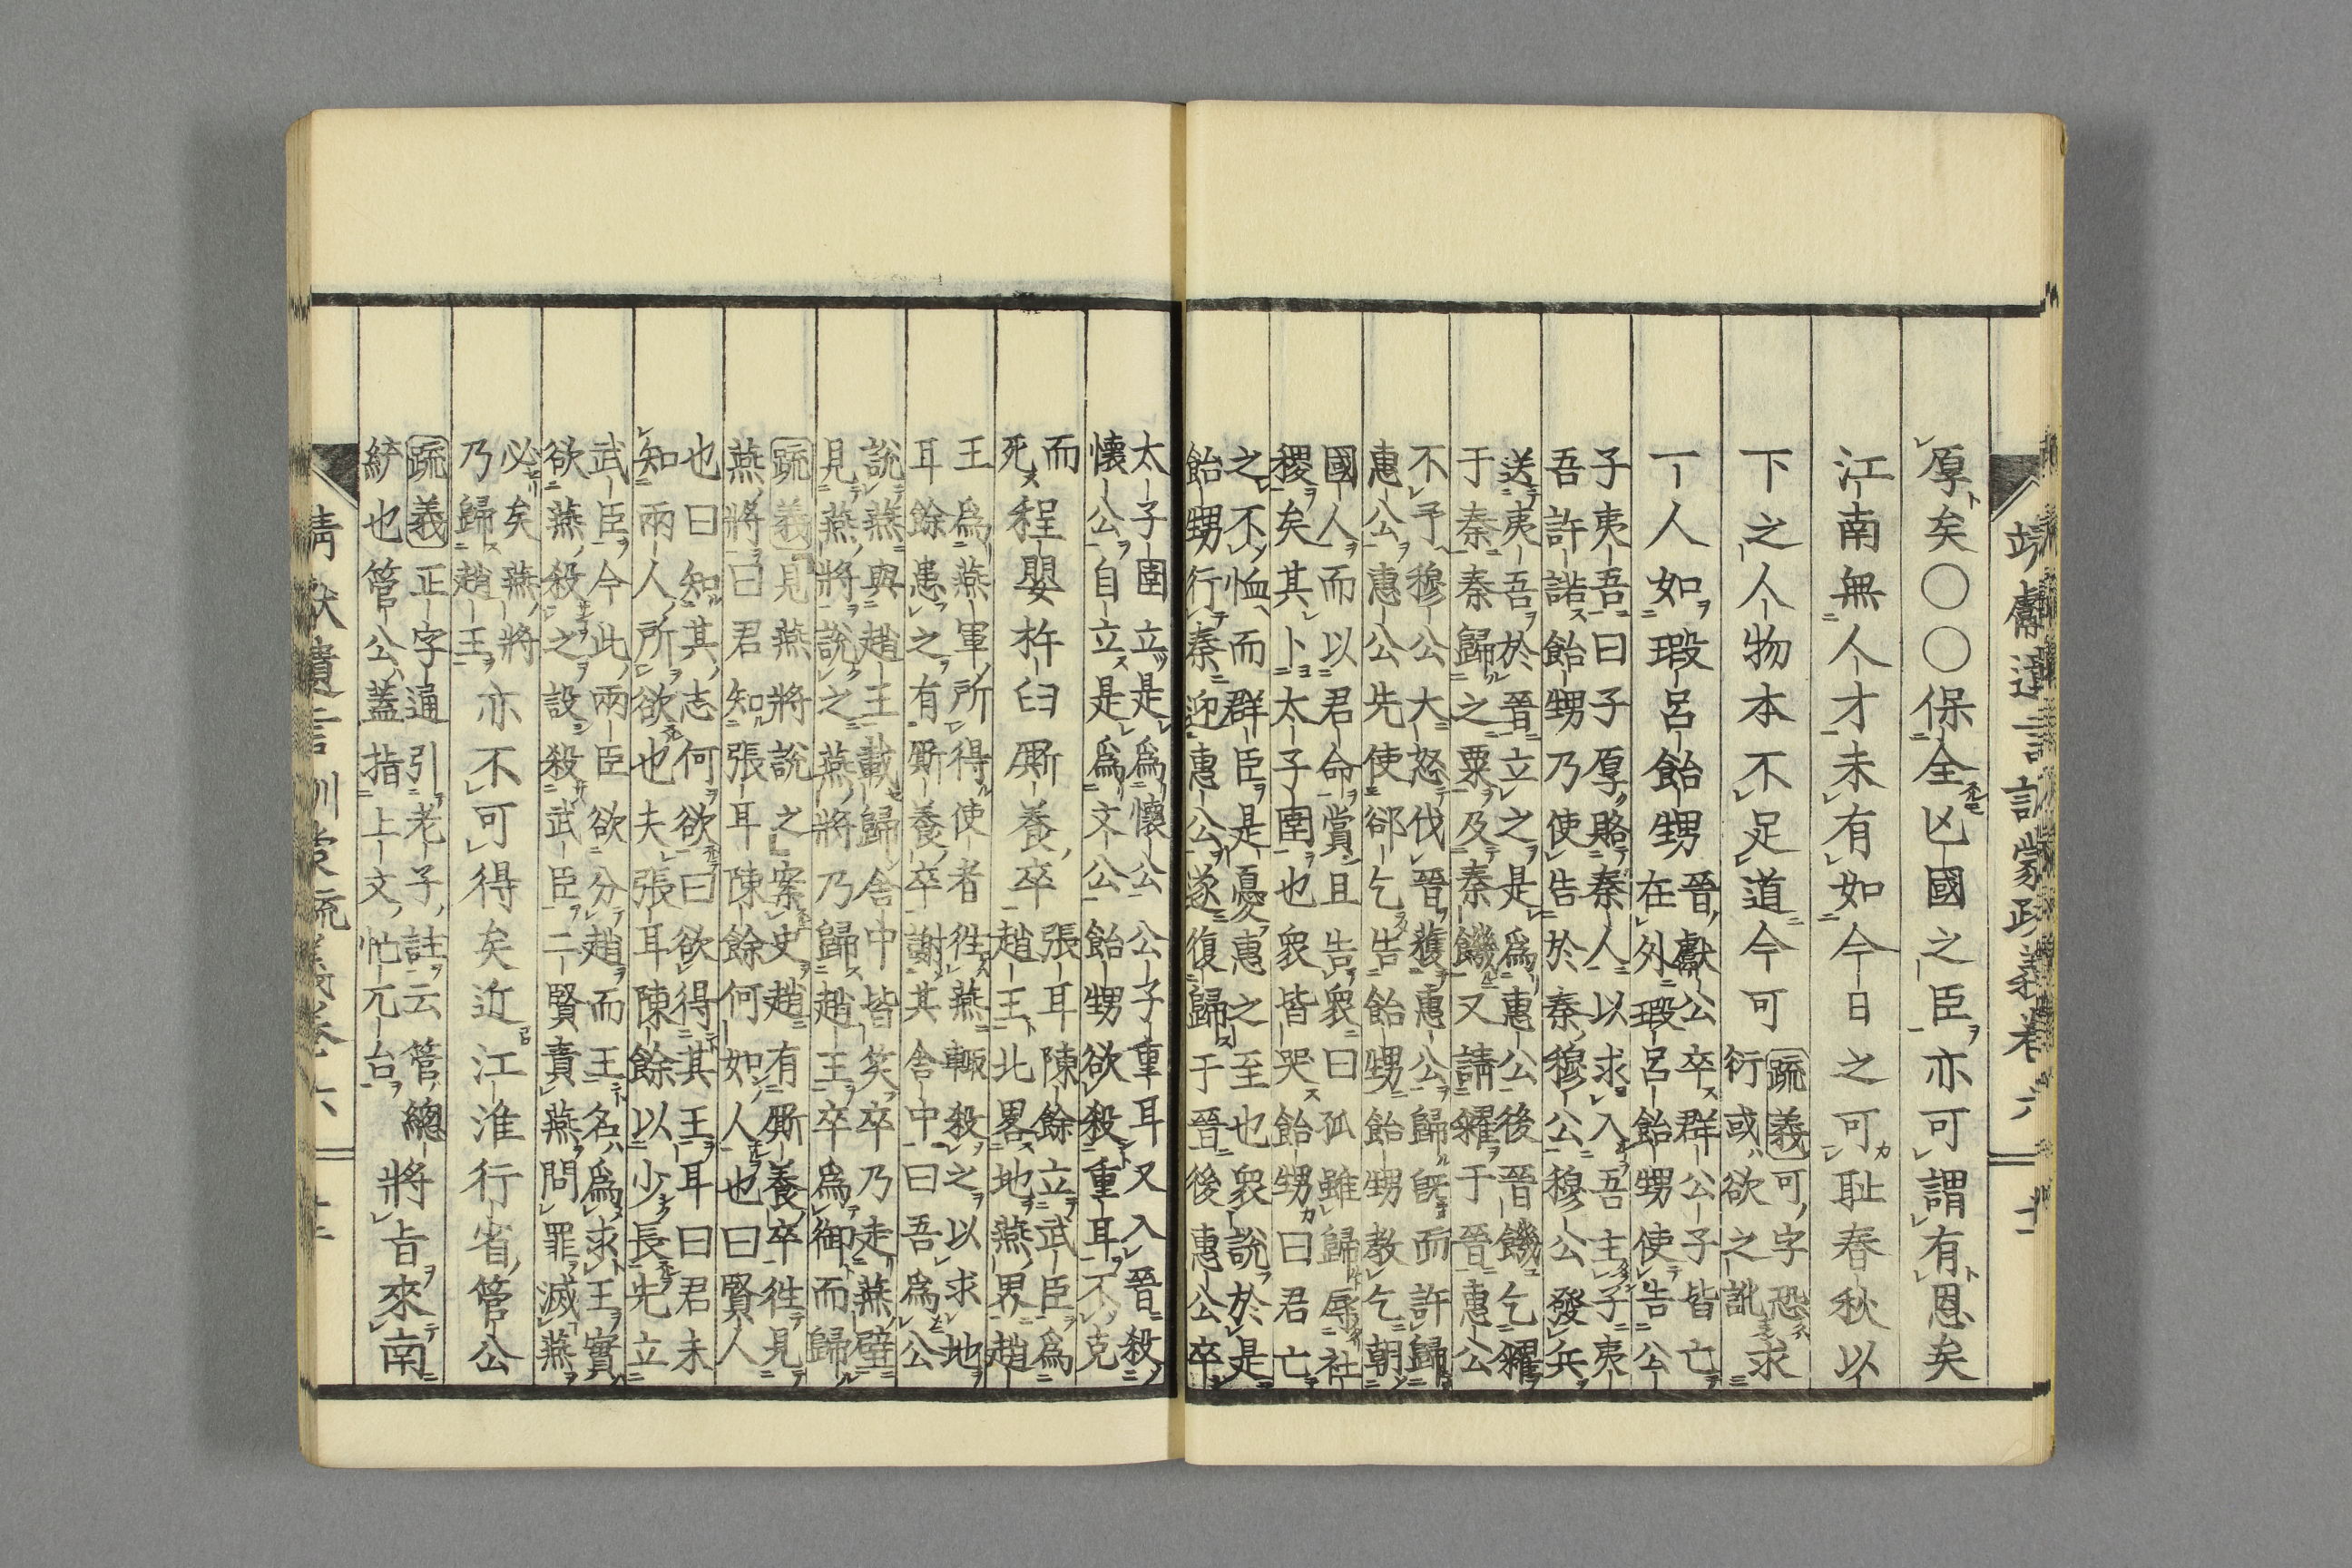 靖獻遺言訓蒙疏義卷六
厚矣〇〇保全亾國之臣亦可謂有恩矣
江南無人才未有如今日之可耻春秋以
下之人物本不足道今可
疏義可字恐
衍或欲之訛
求
一人如瑕呂飴甥
晉獻公卒群公子皆亡
在外瑕呂飴甥使告公
子夷吾曰子厚賂秦人以求入吾主子夷
吾許諾飴甥乃使告於秦穆公穆公發兵
送夷吾於晉立之是爲惠公後晉饑乞糴
于秦秦歸之粟及秦饑又請糴于晉惠公
不予穆公大怒伐晉獲惠公歸旣而許歸
惠公惠公先使郤乞告飴甥飴甥教乞朝
國人而以君命賞且告衆曰孤雖歸辱社
稷矣其卜太子圉也衆皆哭飴甥曰君亡
之不恤而群臣是憂惠之至也衆說於是
飴甥行秦迎惠公遂復歸于晉後惠公卒
太子圉立是爲懷公公子重耳又入晉殺
懷公自立是爲文公飴甥欲殺重耳不克
而
死
程嬰杵臼厮養卒
張耳陳餘立武臣爲
趙王北畧地燕界趙
王爲燕軍所得使者徃燕輙殺之以求地
耳餘患之有厮養卒謝其舍中曰吾爲公
說燕與趙王載歸舍中皆笑卒乃走燕壁
見燕將說之燕將乃歸趙王卒爲御而歸
疏義見燕將說之案史趙有厮養卒徃見
燕將曰君知張耳陳餘何如人也曰賢人
也曰知其志何欲曰欲得其王耳曰君未
知兩人所欲也夫張耳陳餘以少長先立
武臣今此兩臣欲分趙而王名爲求王實
欲燕殺之設殺武臣二賢責燕問罪滅燕
必矣燕將
乃歸趙王
亦不可得矣近江淮行省管公
疏義正字通引老子註云管總
也管公蓋指上文忙兀台
將旨來南
靖獻遺言訓蒙疏義卷六